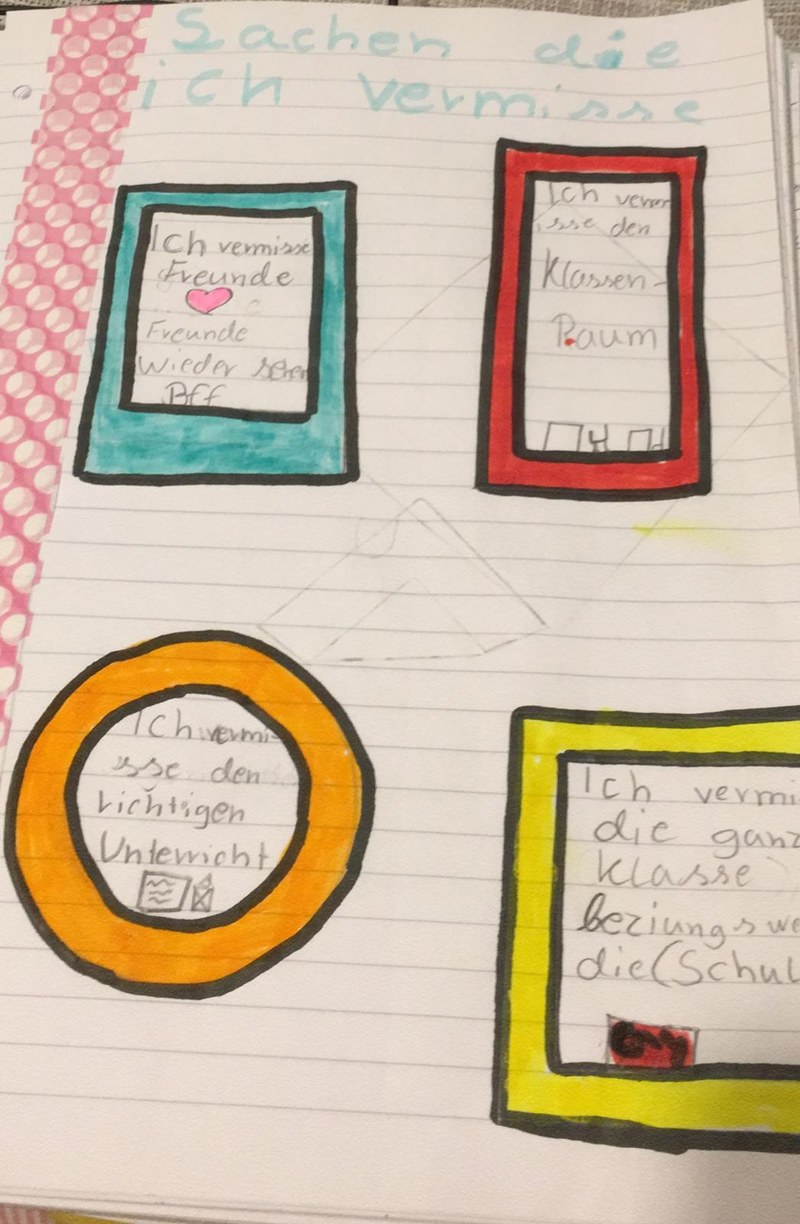 Sachen die
ich vermisse
Ich vermisse
Freunde
Freunde
wieder sehen
Bff
Ich verm
isse den
Klassen-
Raum
Ich vermi
sse den
richtigen
Unterricht
Ich vermi
die ganz
klasse
beziungswe
die (Schul